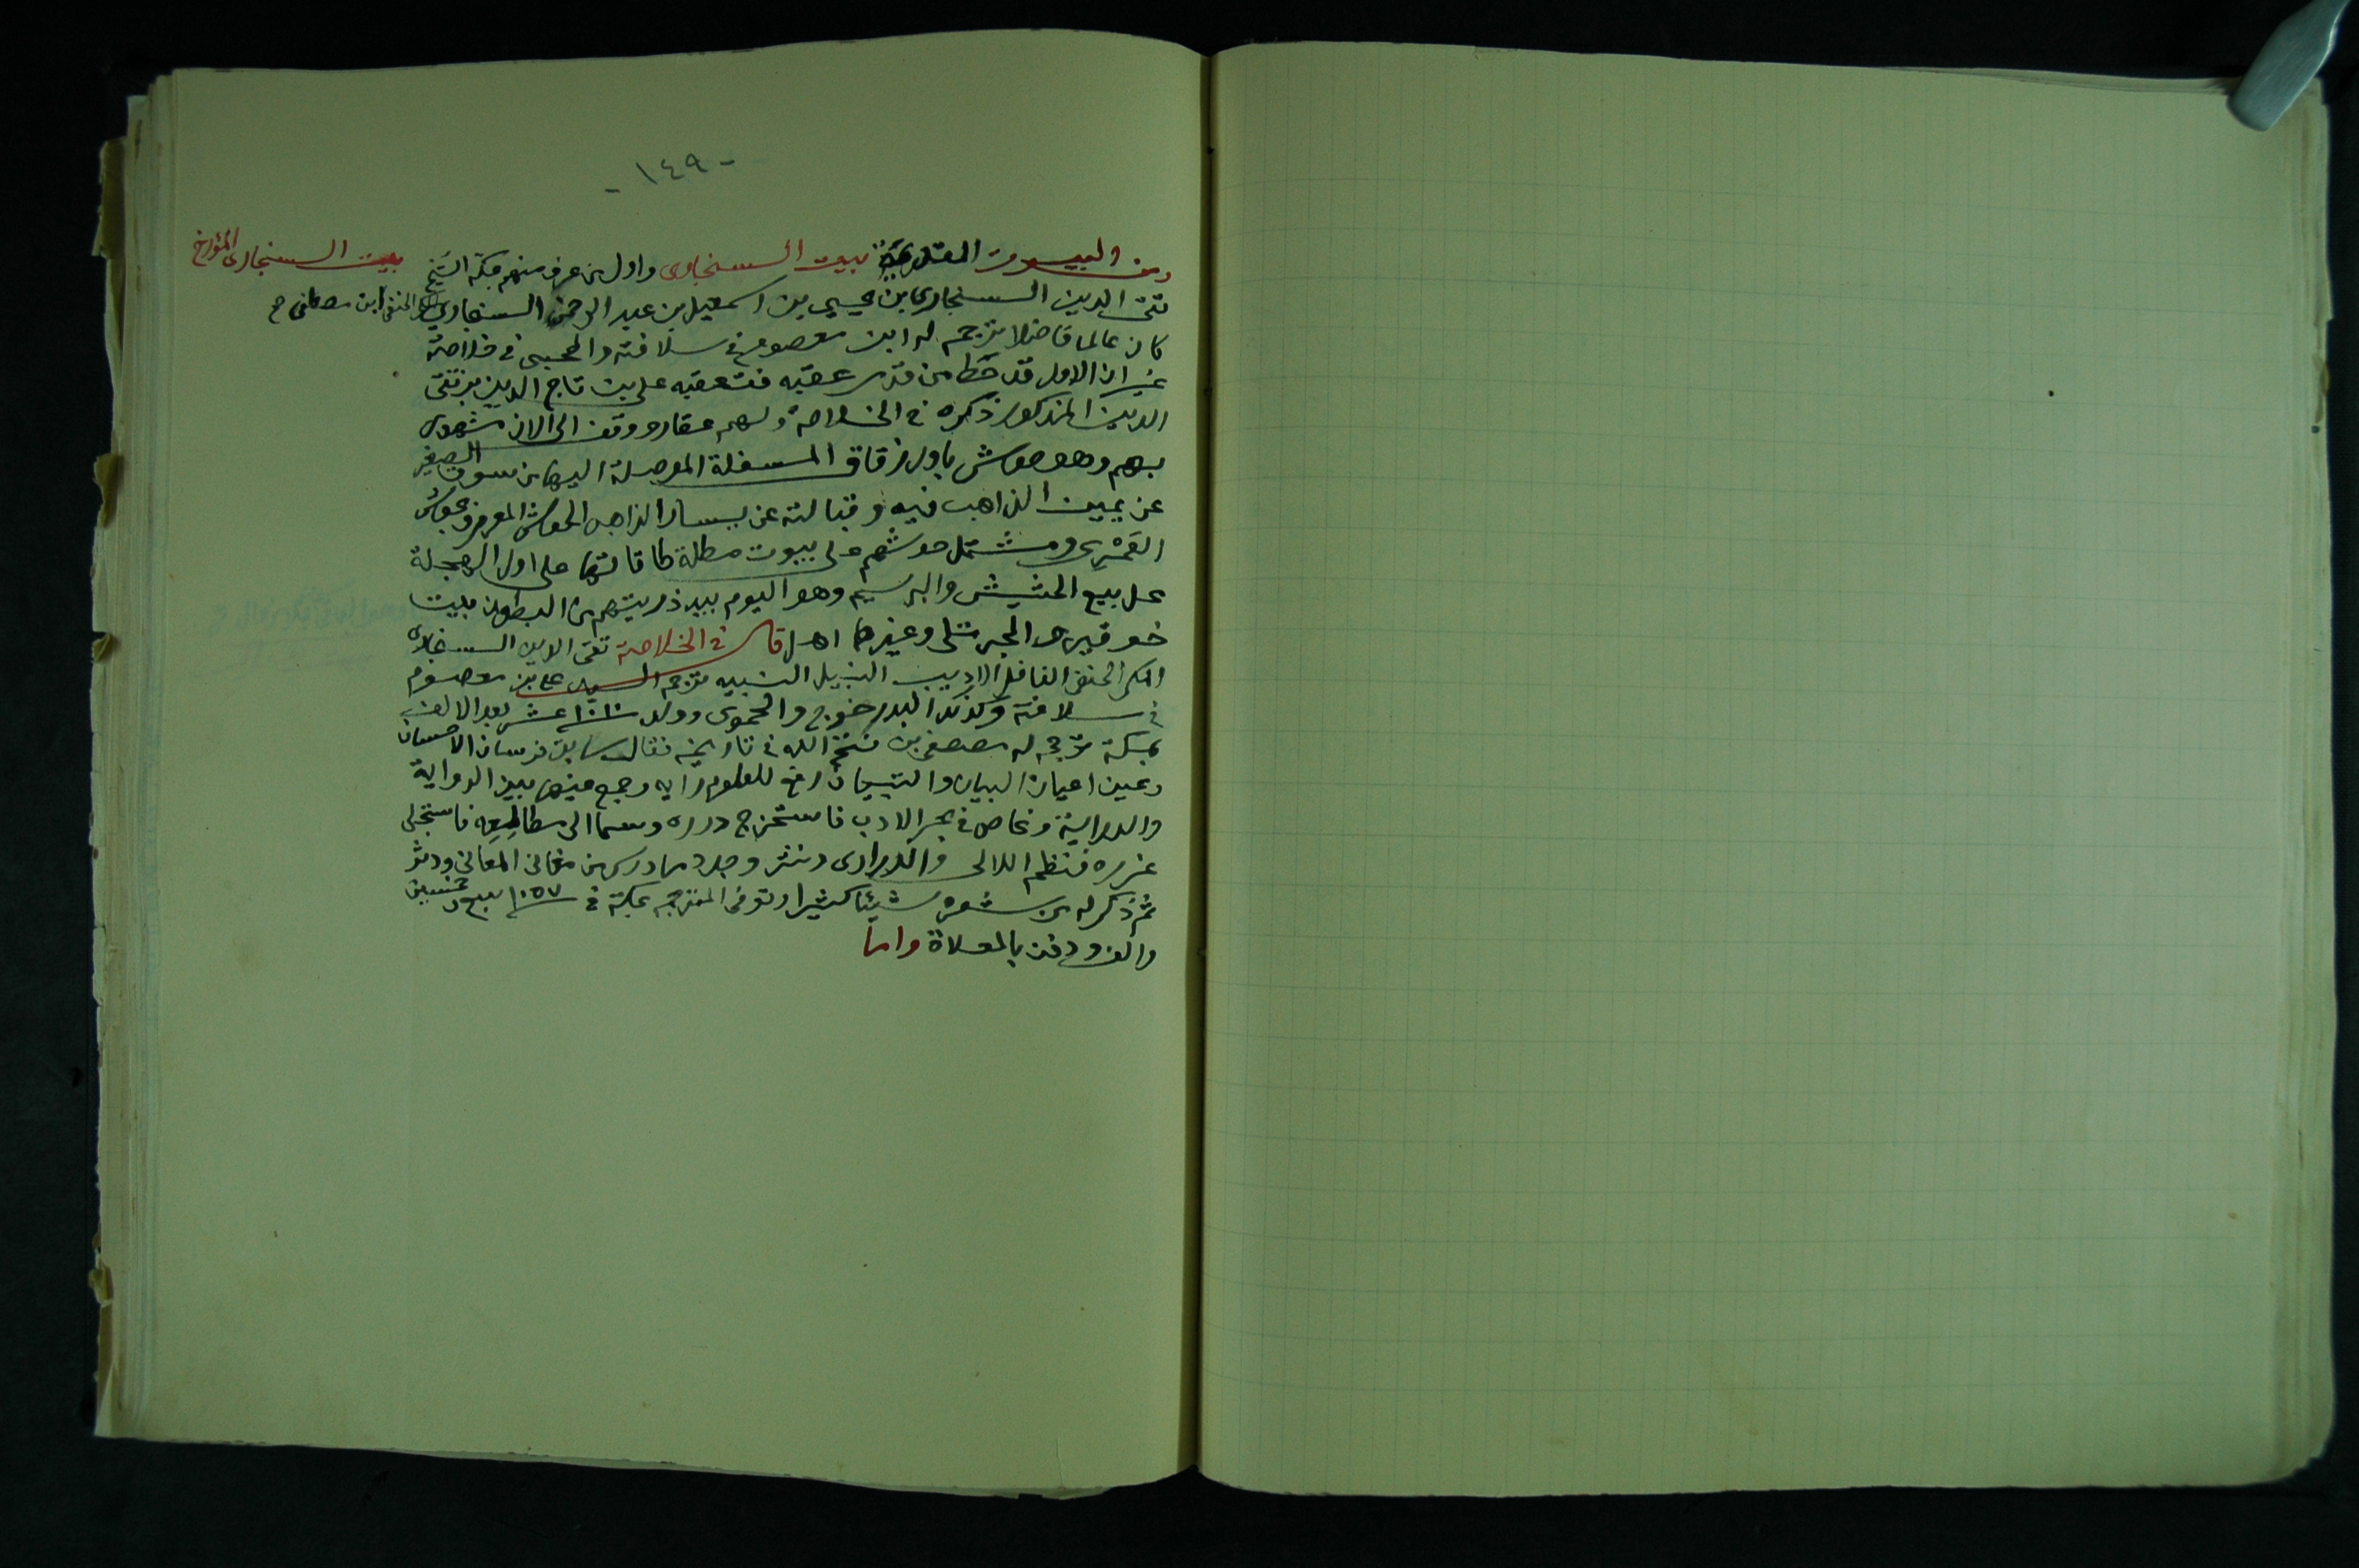 - ١٤٩ -
بيت السنجارى المؤرخ
ومن البيوت القديمة بيت السنجارى واول من عرف منهم بمكة الشيخ
تقى الدين السنجارى بن يحيى بن اسمعيل بن عبد الرحمن السنجارى الحنفى ابن مصطفى ح
كان عالما فاضلا ترجم له ابن معصوم فى سلافته والمحبى فى خلاصته
غير ان الاول قد حط من قدر عقبه فتعقبه على بن تاج الدين بن تقى
الدين المذكور ذكره فى الخلاصة ولهم عقار ووقف الى الان مشهور
بهم وهو حوش باول زقاق المسفلة الموصلة اليها من سوق الصغير
عن يمين الذاهب فيه وقبالته عن يسار الذاهب الحوش المعروف بحوش
القمرى ومشتمل حوشهم على بيوت مطلة طاقاتها على اول الهجلة
محل بيع الحشيش والبرسيم وهو اليوم بيد ذريتهم من البطون بيت
خوقير والجبرتلى وغيرهما اهـ قال فى الخلاصة تقى الدين السنجارى
المكى الحنفى الفاضل الاديب النبيل النبيه ترجم السيد على بن معصوم
فى سلافته وكذلك البدر خوج والحموى وولد سنة ١٠١٠ عشر بعد الالف
بمكة ترجم له مصطفى بن فتح الله فى تاريخه فقال سابق فرسان الاحسان
وعين اعيان البيان والتبيان رفع للعلوم رايه وجمع فيها بين الرواية
والدراية وغاص فى بحر الادب فاستخرج درره وسما الى مطالعه فاستجلى
غرره فنظم اللالى والدرارى ونثر وجدد ما درس من مغانى المعانى ودثر
ثم ذكر له من شعره شيئا كثيرا وتوفى المترجم بمكة فى سنة ١٠٥٧ سبع وخمسين
والف ودفن بالمعلاة واما